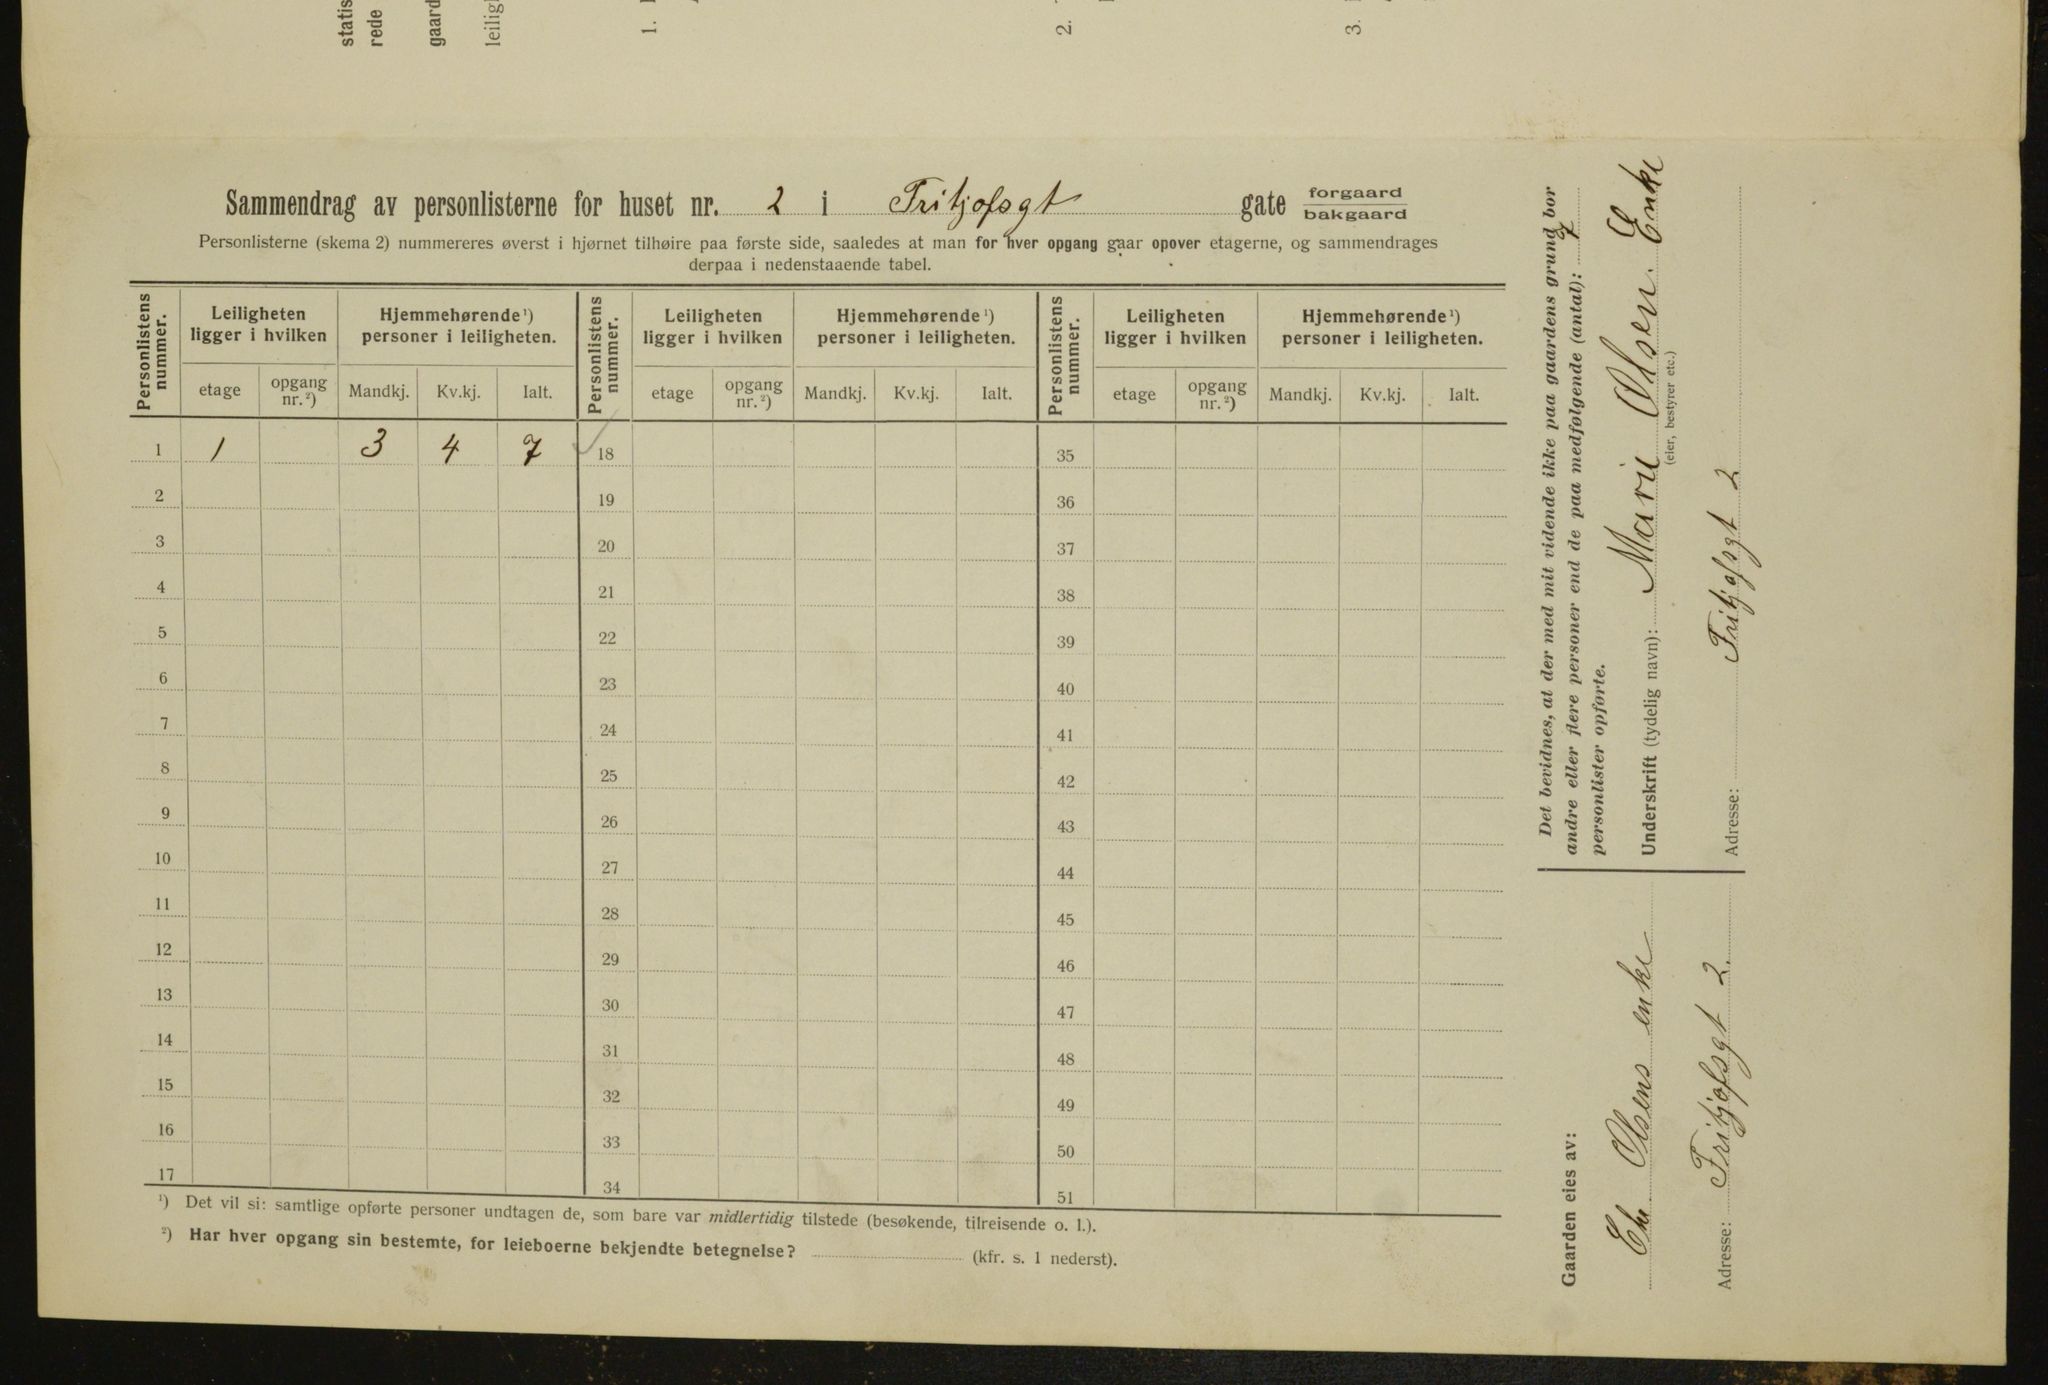 statis
rede
gaard
leilig
1.
2.
3.
Sammendrag av personlisterne for huset nr. 2 i Fritjofsgt gate forgaard
bakgaard
Personlisterne (skema 2) nummereres øverst i hjørnet tilhøire paa første side, saaledes at man for hver opgang gaar opover etagerne, og sammendrages
derpaa i nedenstaaende tabel.
Personlistens nummer. Leiligheten ligger i hvilken Hjemmehørende¹) personer i leiligheten. Personlistens nummer. Leiligheten ligger i hvilken Hjemmehørende¹) personer i leiligheten. Personlistens nummer. Leiligheten ligger i hvilken Hjemmehørende¹) personer i leiligheten.
etage opgang nr.²) Mandkj. Kv.kj. Ialt. etage opgang nr.²) Mandkj. Kv.kj. Ialt. etage opgang nr.²) Mandkj. Kv.kj. Ialt.
1 1 3 4 7 18 35
2 19 36
3 20 37
4 21 38
5 22 39
6 23 40
7 24 41
8 25 42
9 26 43
10 27 44
11 28 45
12 29 46
13 30 47
14 31 48
15 32 49
16 33 50
17 34 51
¹) Det vil si: samtlige opførte personer undtagen de, som bare var midlertidig tilstede (besøkende, tilreisende o. l.).
²) Har hver opgang sin bestemte, for leieboerne bekjendte betegnelse? (kfr. s. 1 nederst).
Det bevidnes, at der med mit vidende ikke paa gaardens grund bor
andre eller flere personer end de paa medfølgende (antal): 7
personlister opførte.
Underskrift (tydelig navn): Marie Olsen. Enke
(eier, bestyrer etc.)
Adresse: Fritjofsgt 2
Gaarden eies av:
Chr Olsens enke
Adresse: Fritjofsgt 2.